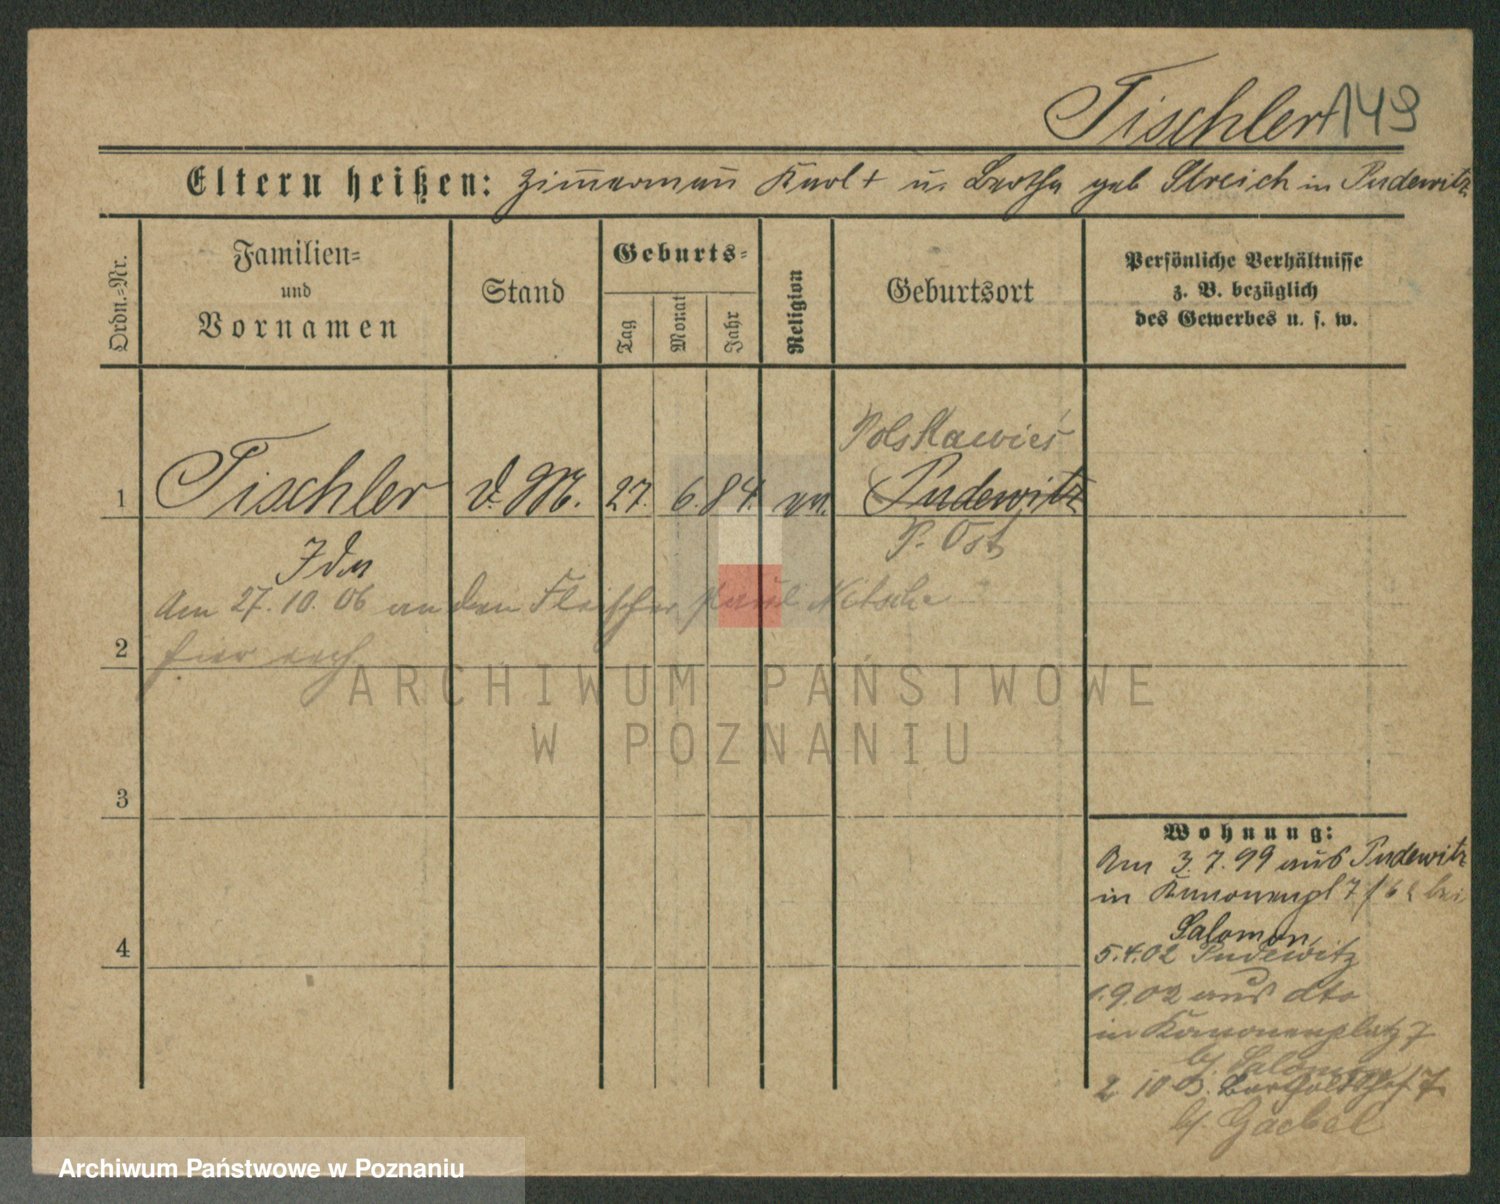 Tischler 149
Eltern heißen: Zimmermann Karl + u. Bertha geb Streich in Pudewitz
Ordn.-Nr.
Familien-
und
Vornamen
Stand
Geburts-
Tag
Monat
Jahr
Religion
Geburtsort
Persönliche Verhältnisse
z. B. bezüglich
des Gewerbes u. s. w.
Polskawieś
1 Tischler d. M. 27. 6. 84. ev. Pudewitz
P. Ost
Ida
Am 27. 10. 06 an den Fleischer Paul Nitsche
2 hier
3
4
Wohnung:
Am 3. 7. 99 aus Pudewitz
in Kanonenpl 7 bei
Salomon,
5.4.02 Pudewitz
1.9.02 aus dto
in Kanonenplatz 7
b/ Salomon
2 10 3. 7
b/ Gaebel
ARCHIWUM PAŃSTWOWE
W POZNANIU
Archiwum Państwowe w Poznaniu